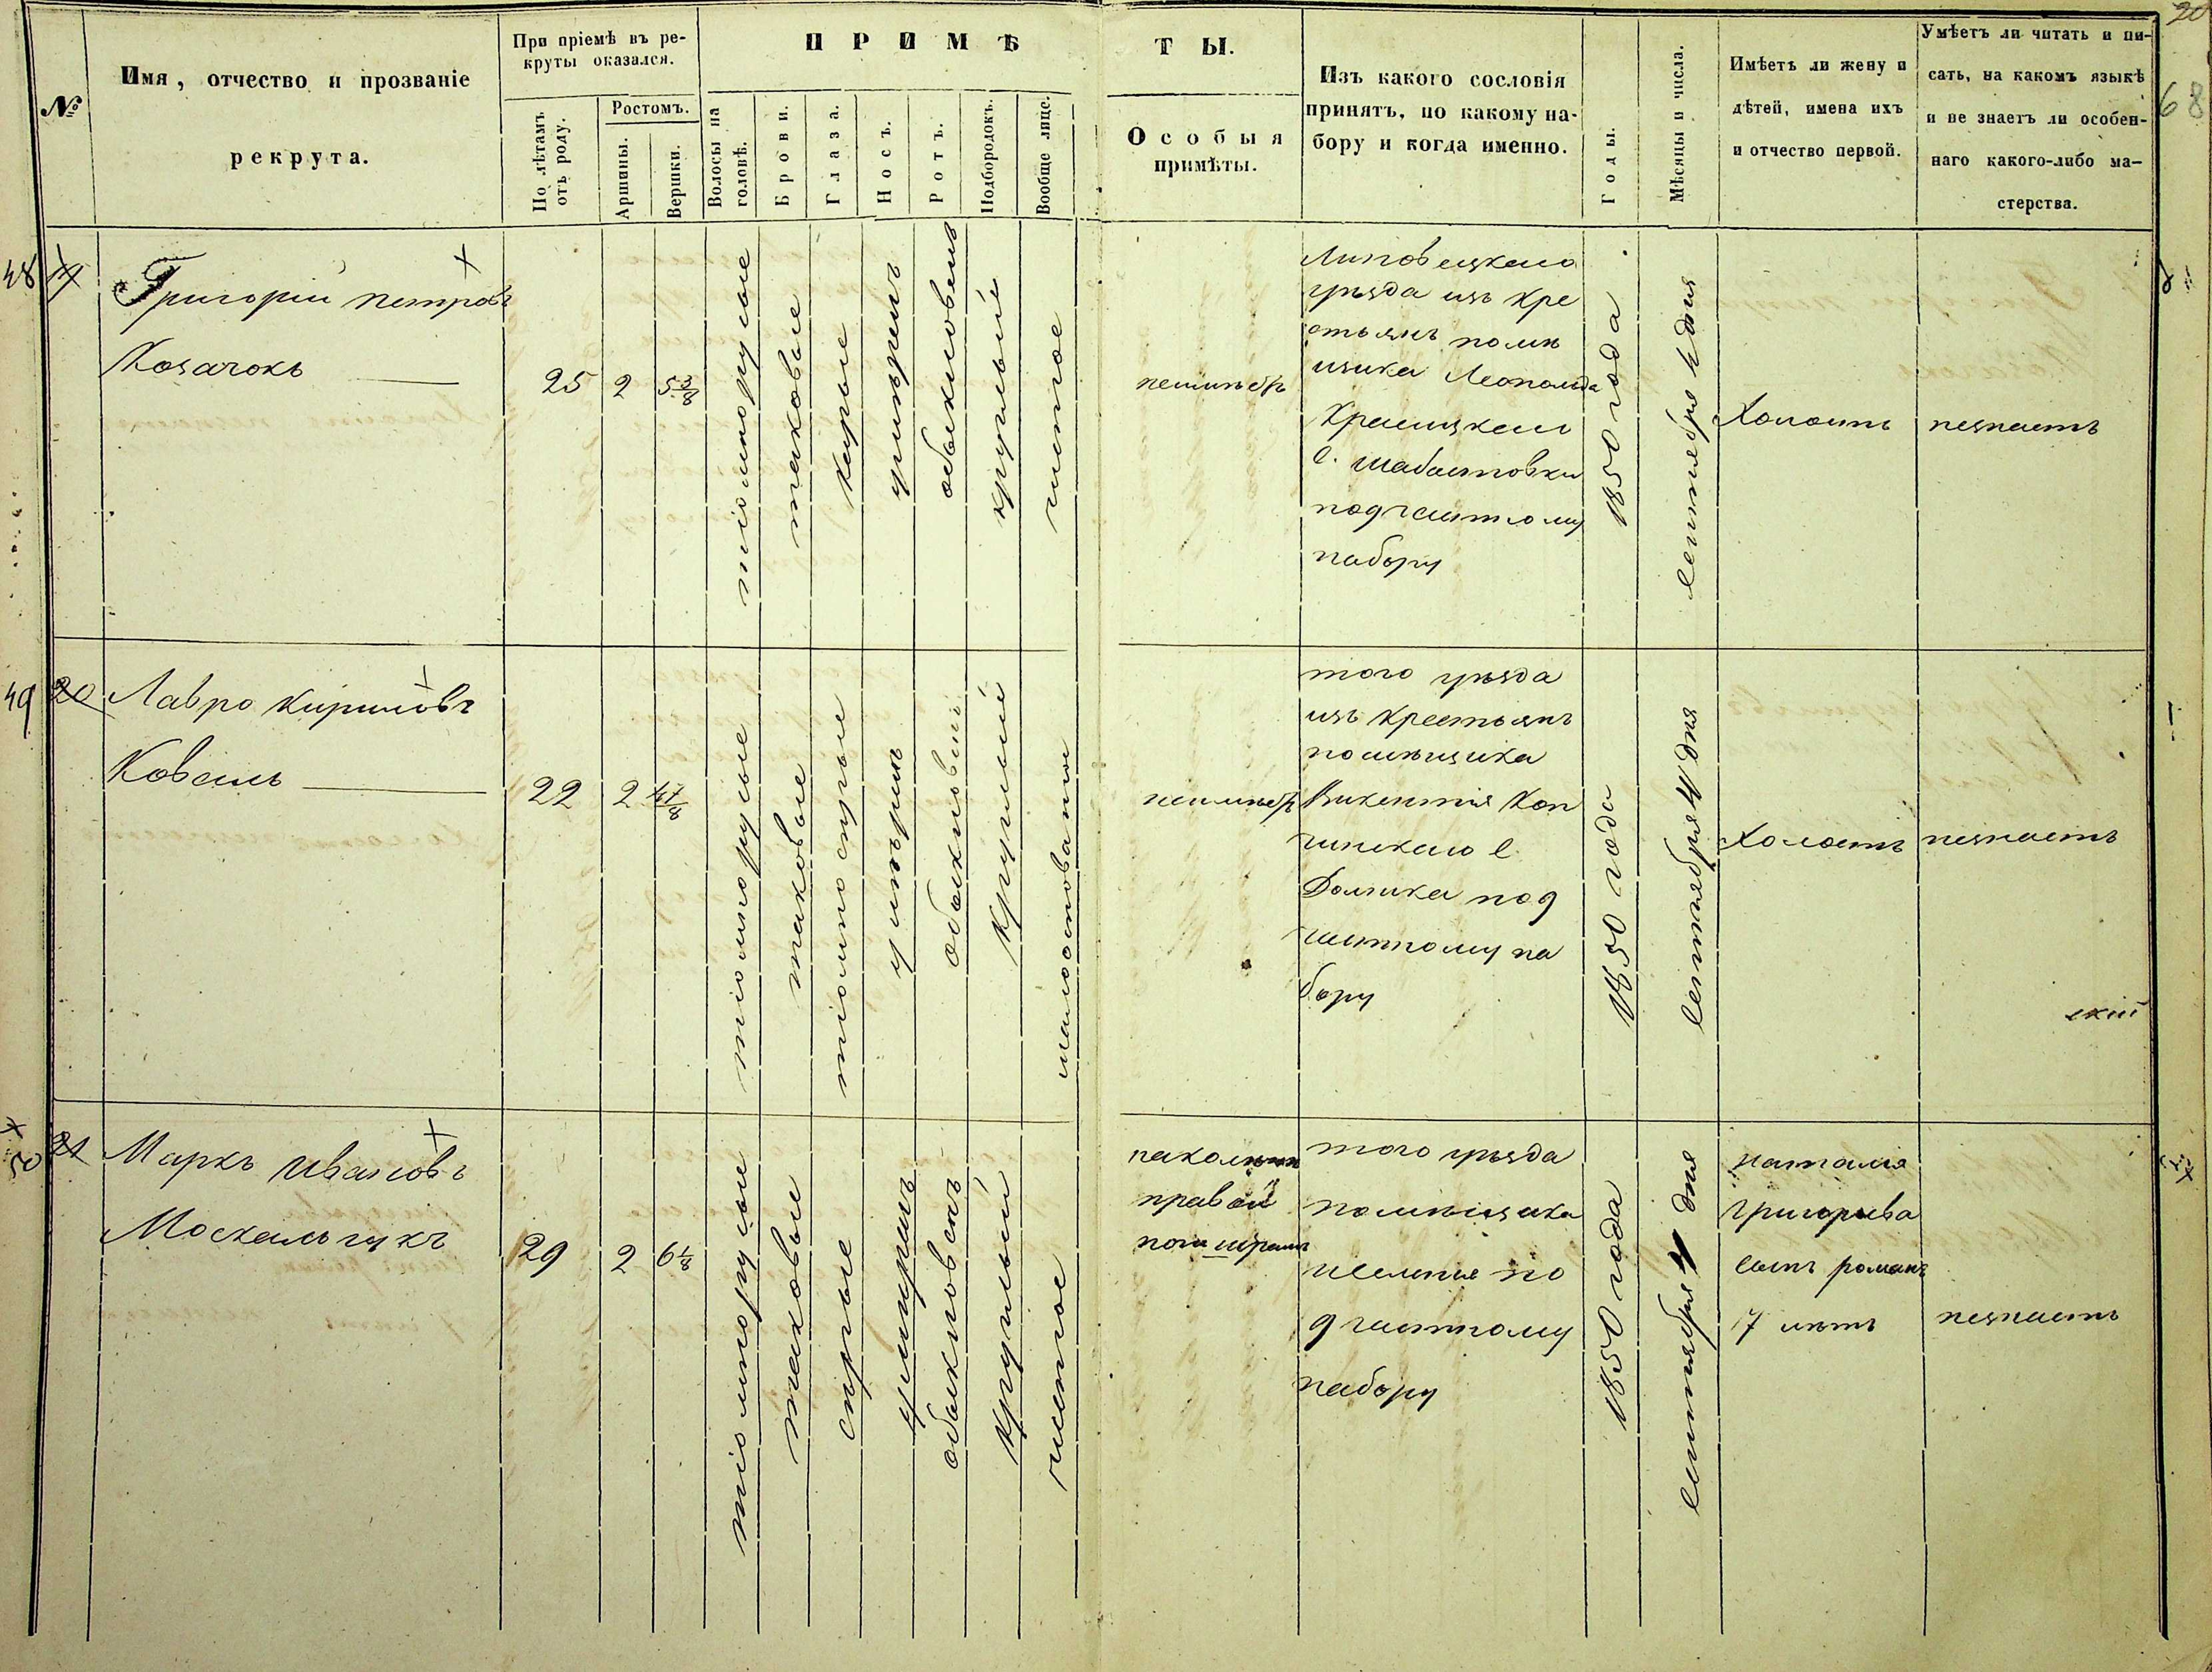 20
68
№
Имя, отчество и прозваніе
рекрута.
При пріемѣ въ ре-
круты оказался.
По лѣтамъ
отъ роду.
Ростомъ.
Аршины.
Вершки.
ПРИМѢ
ТЫ.
Волосы на
головѣ.
Брови.
Глаза.
Носъ.
Ротъ.
Подбородокъ.
Вообще лице.
Особыя
примѣты.
Изъ какого сословія
принятъ, по какому на-
бору и когда именно.
Годы.
Мѣсяцы и числа.
Имѣетъ ли жену и
дѣтей, имена ихъ
и отчество первой.
Умѣетъ ли читать и пи-
сать, на какомъ языкѣ
и не знаетъ ли особен-
наго какого-либо ма-
стерства.
48
Григорій петровъ
Козачокъ
25
2
5 3/8
тіомнорусые
таковые
карые
умѣренъ
обыкновенъ
круглый
чистое
неимѣетъ
Липовецкаго
уѣзда изъ кре
стьянъ помѣ
щика Леопольда
с. шабастовки
подчастному
набору
1850 года
сентября 4 дня
Холостъ
незнаетъ
49
20
Лавро кириловъ
Коваль
22
2
4 7/8
тіомнорусые
таковые
тіомно сѣрые
умѣренъ
круглый
неимѣетъ
того уѣзда
изъ крестьянъ
помѣщика
Викентія Кон
чинскаго с.
Должка под
частному на
бору
1850 года
сентября 4 дня
Холостъ
незнаетъ
скій
50
21
Маркъ ивановъ
Москальчукъ
29
2
6 1/8
тіомнорусые
таковые
сѣрые
умѣренъ
обыкновенъ
круглый
чистое
наколѣнѣ
правой
ноги шрамъ
того уѣзда
помѣщика
имѣнія по
д частному
набору
1850 года
сентября 4 дня
наталія
григорьева
сынъ романъ
7 лѣтъ
незнаетъ